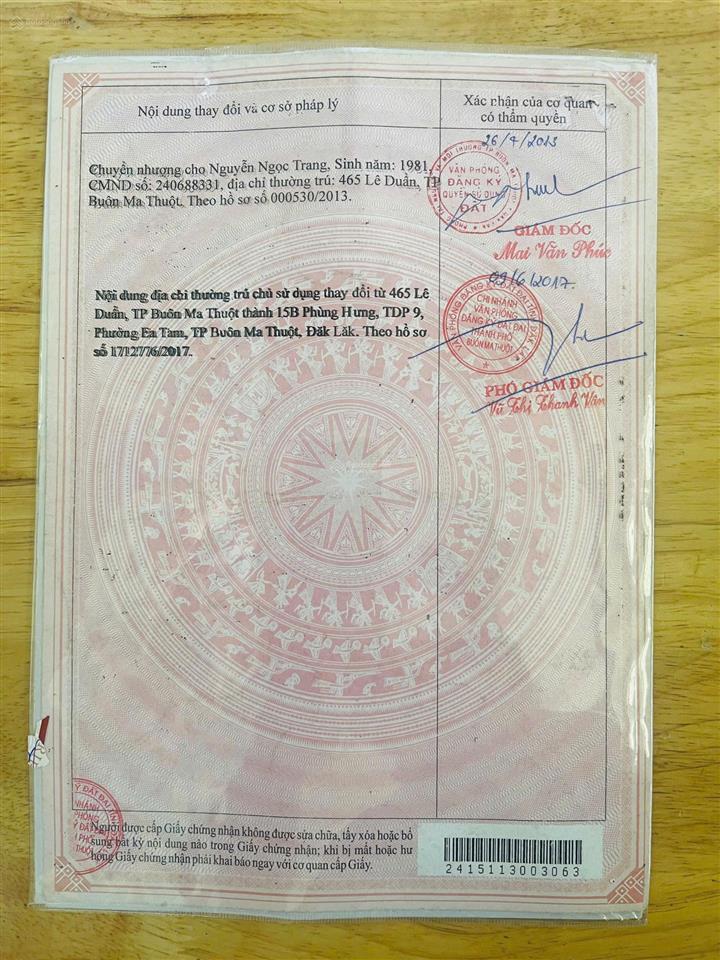 Nội dung thay đổi và cơ sở pháp lý
Xác nhận của cơ quan
có thẩm quyền
Chuyển nhượng cho Nguyễn Ngọc Trang, Sinh năm: 1981,
CMND số: 240688331, địa chỉ thường trú: 465 Lê Duẩn, TP
Buôn Ma Thuột. Theo hồ sơ số 000530/2013.
26/4/2013
VĂN PHÒNG
ĐĂNG KÝ
QUYỀN SỬ DỤNG
ĐẤT
GIÁM ĐỐC
Mai Văn Phúc
Nội dung địa chỉ thường trú chủ sử dụng thay đổi từ 465 Lê
Duẩn, TP Buôn Ma Thuột thành 15B Phùng Hưng, TDP 9,
Phường Ea Tam, TP Buôn Ma Thuột, Đăk Lăk. Theo hồ sơ
số 1712776/2017.
09/6/2017.
VĂN PHÒNG ĐĂNG KÝ ĐẤT ĐAI TỈNH ĐẮK LẮK
CHI NHÁNH
VĂN PHÒNG
ĐĂNG KÝ ĐẤT ĐAI
THÀNH PHỐ
BUÔN MA THUỘT
PHÓ GIÁM ĐỐC
Vũ Thị Thanh Vân
Người được cấp Giấy chứng nhận không được sửa chữa, tẩy xóa hoặc bổ
sung bất kỳ nội dung nào trong Giấy chứng nhận; khi bị mất hoặc hư
hỏng Giấy chứng nhận phải khai báo ngay với cơ quan cấp Giấy.
2415113003063